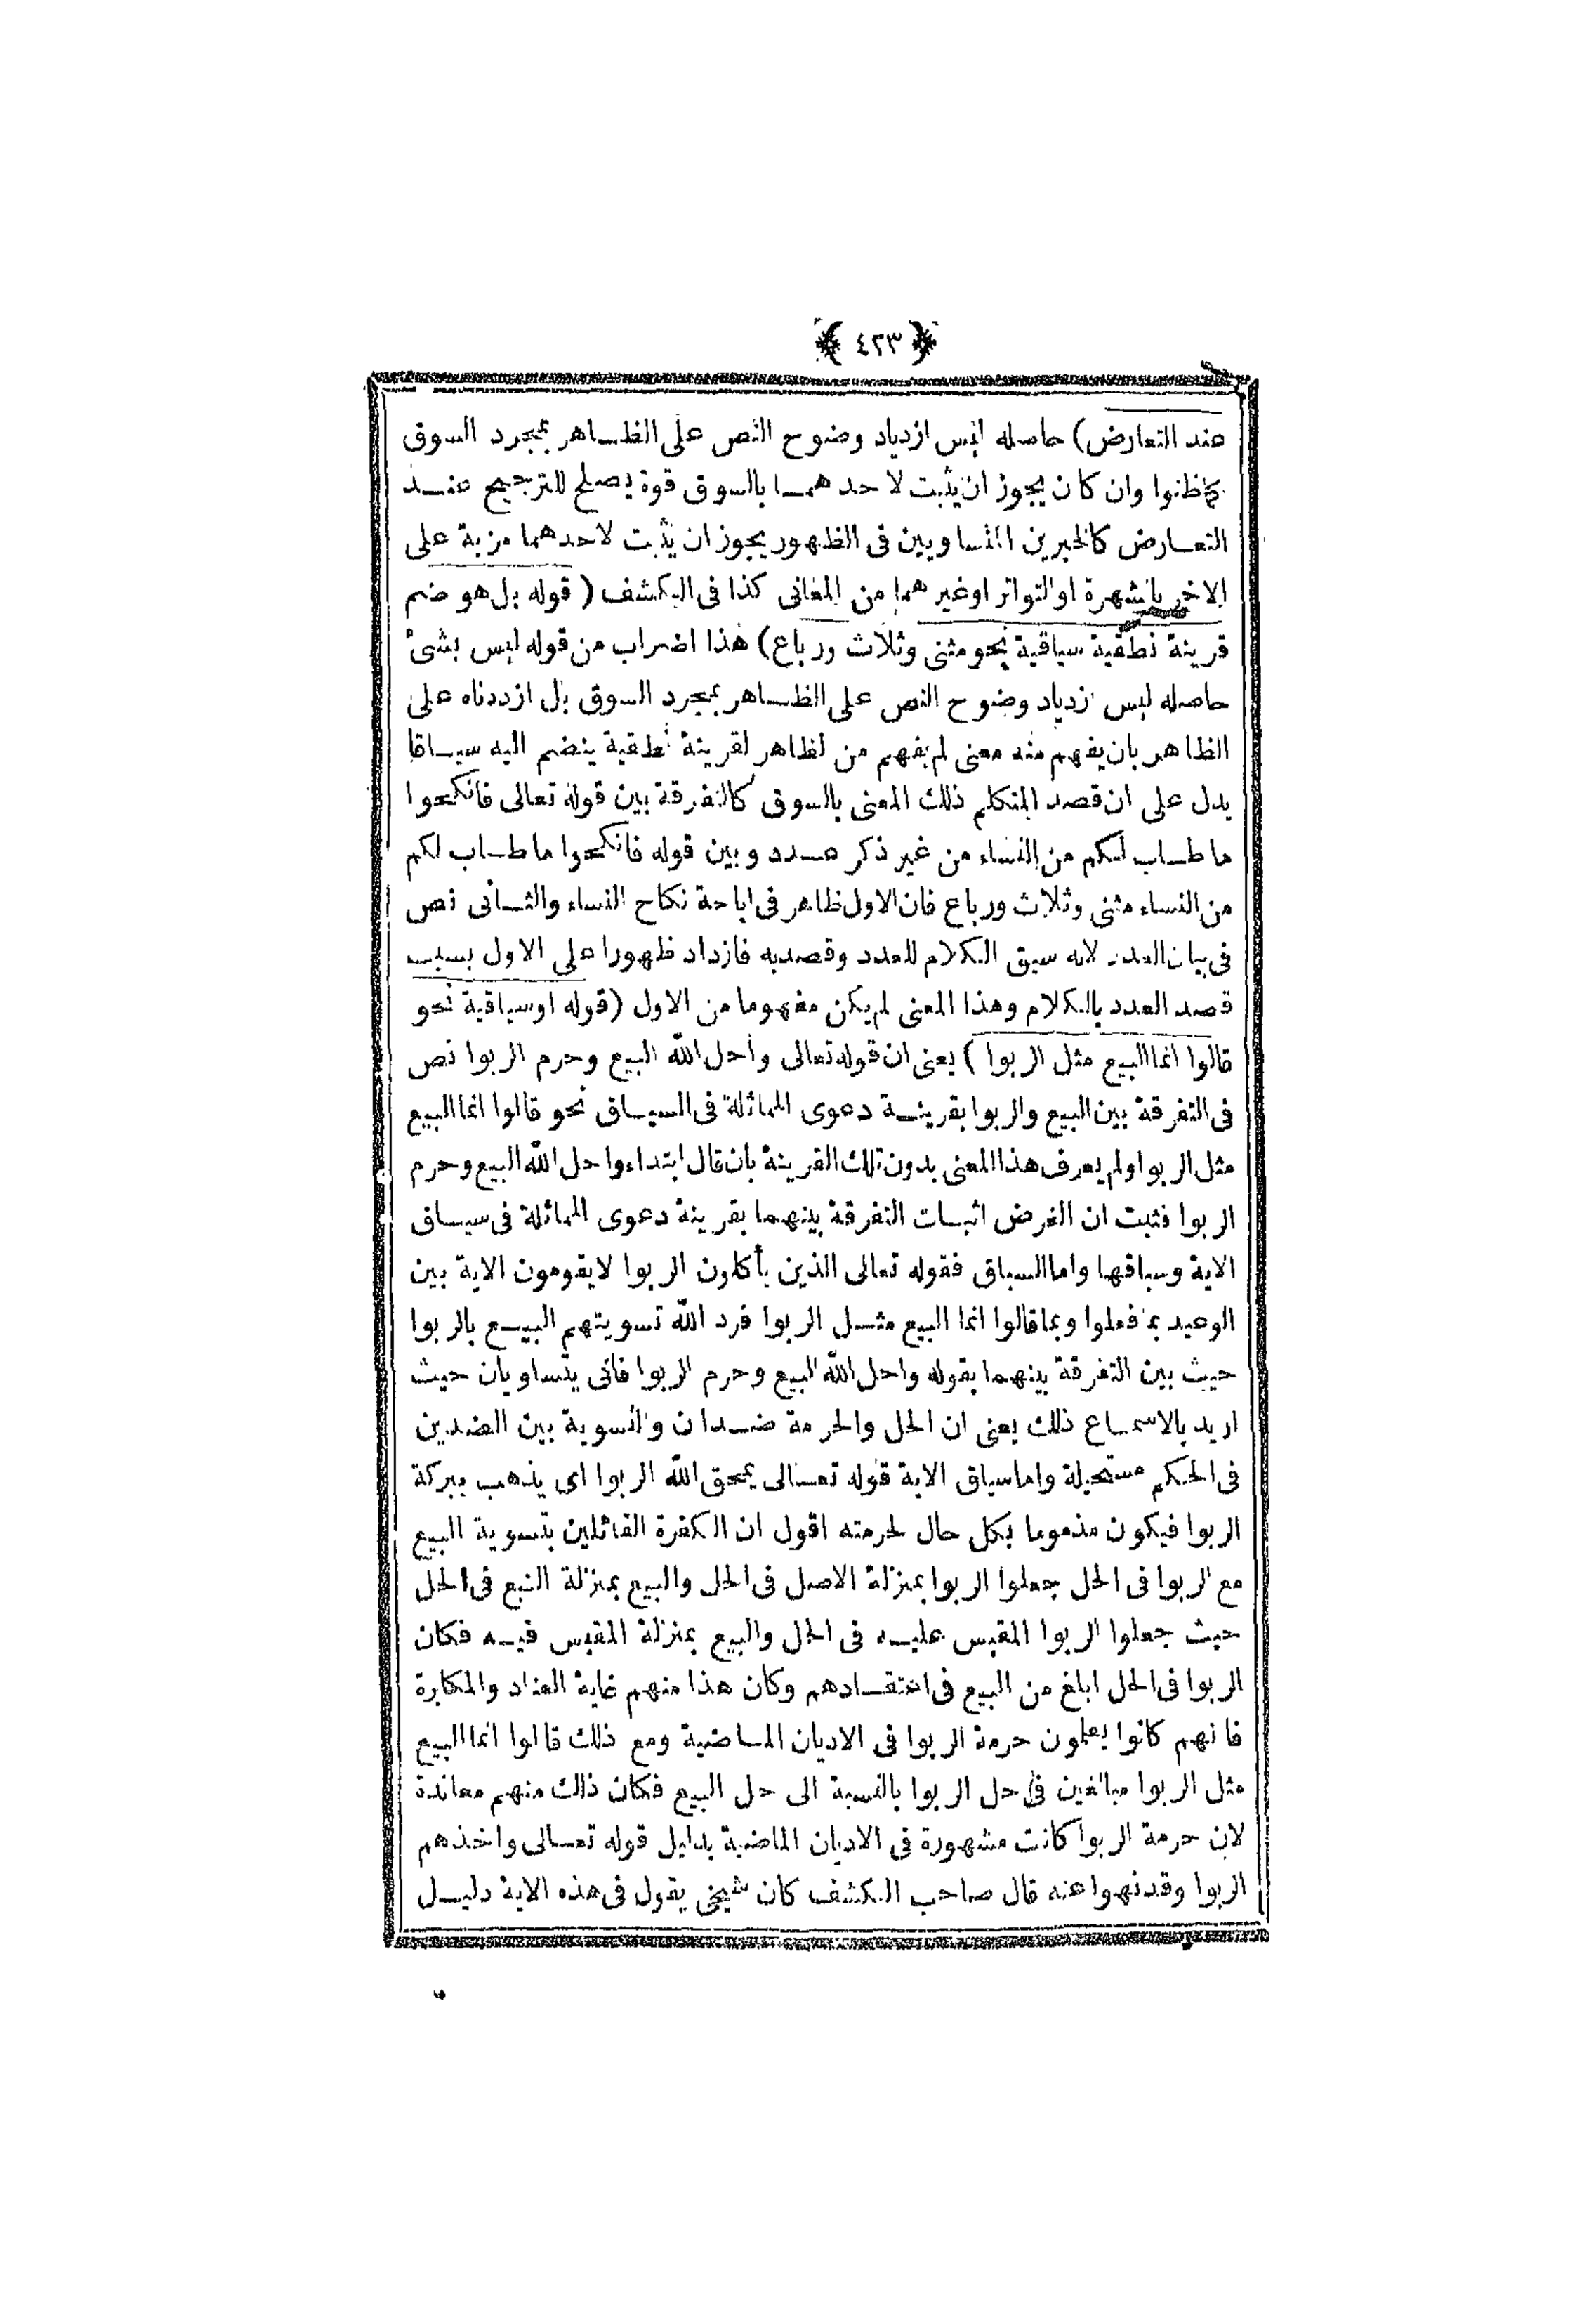 ﴿ ٤٢٣ ﴾
عند التعارض) حاصله ليس ازدياد وضوح النص على الظـاهر بمجرد السوق
كما ظنوا وان كان يجوز ان يثبت لاحدهمـا بالسوق قوة يصلح للترجيح عنـد
التعـارض كالخبرين المتساويين فى الظهور يجوز ان يثبت لاحدهما مزية على
الاخر بالشهرة او التواتر او غيرهما من المعانى كذا فى الكشف (قوله بل هو ضم
قرينة نطقية سياقية نحو مثنى وثلاث ورباع) هذا اضراب من قوله ليس بشئ
حاصله ليس ازدياد وضوح النص على الظـاهر بمجرد السوق بل ازددناه على
الظاهر بان يفهم منه معنى لم يفهم من لظاهر لقرينة نطقية ينضم اليه سيـاقا
يدل على ان قصد المتكلم ذلك المعنى بالسوق كالتفرقة بين قوله تعالى فانكحوا
ما طـاب لكم من النساء من غير ذكر عـدد وبين قوله فانكحوا ما طـاب لكم
من النساء مثنى وثلاث ورباع فان الاول ظاهر فى اباحة نكاح النساء والثـانى نص
فى بيان العدد لانه سيق الكلام للعدد وقصد به فازداد ظهورا على الاول بسبب
قصد العدد بالكلام وهذا المعنى لم يكن مفهوما من الاول (قوله او سياقية نحو
قالوا انما البيع مثل الربوا) يعنى ان قوله تعالى واحل الله البيع وحرم الربوا نص
فى التفرقة بين البيع والربوا بقرينـة دعوى المماثلة فى السيـاق نحو قالوا انما البيع
مثل الربوا ولم يعرف هذا المعنى بدون تلك القرينة بان قال ابتداء واحل الله البيع وحرم
الربوا فثبت ان الغرض اثبـات التفرقة بينهما بقرينة دعوى المماثلة فى سيـاق
الاية وسباقها واما السباق فقوله تعالى الذين يأكلون الربوا لا يقومون الاية بين
الوعيد بما فعلوا وبما قالوا انما البيع مثـل الربوا فرد الله تسويتهم البيـع بالربوا
حيث بين التفرقة بينهما بقوله واحل الله البيع وحرم الربوا فانى يتساويان حيث
اريد بالاسمـاع ذلك يعنى ان الحل والحرمة ضـدان والتسوية بين الضدين
فى الحكم مستحيلة واما سياق الاية قوله تعـالى يمحق الله الربوا اى يذهب ببركة
الربوا فيكون مذموما بكل حال لحرمته اقول ان الكفرة القائلين بتسوية البيع
مع الربوا فى الحل جعلوا الربوا بمنزلة الاصل فى الحل والبيع بمنزلة التبع فى الحل
حيث جعلوا الربوا المقيس عليـه فى الحل والبيع بمنزلة المقيس فيـه فكان
الربوا فى الحل ابلغ من البيع فى اعتقـادهم وكان هذا منهم غاية العناد والمكابرة
فانهم كانوا يعلمون حرمة الربوا فى الاديان المـاضية ومع ذلك قالوا انما البيع
مثل الربوا مبالغين فى حل الربوا بالنسبة الى حل البيع فكان ذلك منهم معاندة
لان حرمة الربوا كانت مشهورة فى الاديان الماضية بدليل قوله تعـالى واخذهم
الربوا وقد نهوا عنه قال صاحب الكشف كان شيخى يقول فى هذه الاية دليـل